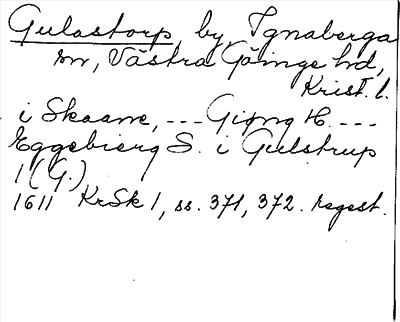 Gulastorp by, Ignaberga
sn, Västra Göinge hd,
Krist. l.
i Skaane, --- Giøng H. ---
Eggebierg S. i Gulstrup
1 (G.)
1611 KrSk 1, ss. 371, 372. regest.